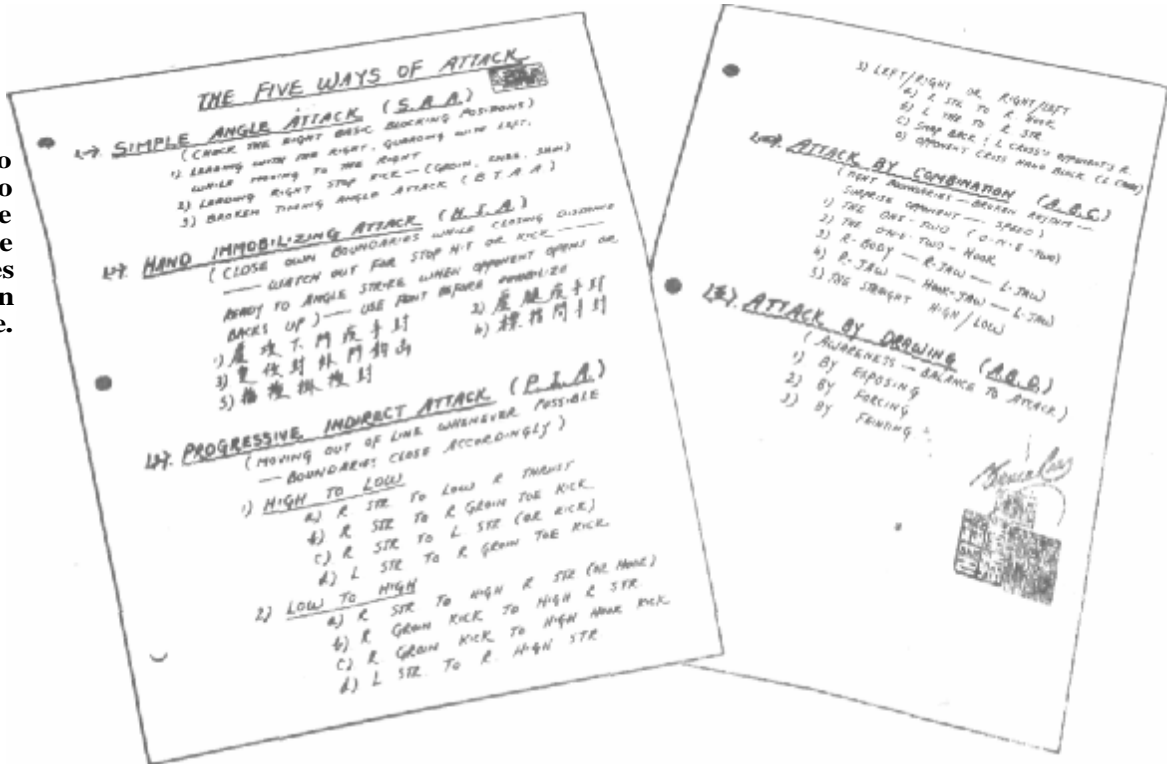 o
o
e
e
es
n
e.
THE FIVE WAYS OF ATTACK
SIMPLE ANGLE ATTACK (S.A.A.)
(CHECK THE EIGHT BASIC BLOCKING POSITIONS)
1) LEADING WITH THE RIGHT, GUARDING WITH LEFT,
WHILE MOVING TO THE RIGHT
2) LEADING RIGHT STOP KICK — (GROIN, KNEE, SHIN)
3) BROKEN TIMING ANGLE ATTACK (B.T.A.A)
HAND IMMOBILIZING ATTACK (H.I.A)
(CLOSE OWN BOUNDARIES WHILE CLOSING DISTANCE
— WATCH OUT FOR STOP HIT OR KICK —
READY TO ANGLE STRIKE WHEN OPPONENT OPENS OR
BACKS UP) — USE FEINT BEFORE IMMOBILIZE
1)
2)
3)
4)
5)
PROGRESSIVE INDIRECT ATTACK (P.I.A.)
(MOVING OUT OF LINE WHENEVER POSSIBLE
— BOUNDARIES CLOSE ACCORDINGLY)
1) HIGH TO LOW
a) R STR TO LOW R THRUST
b) R STR TO R GROIN TOE KICK
c) R STR TO L STR (OR KICK)
d) L STR TO R GROIN TOE KICK
2) LOW TO HIGH
a) R STR TO HIGH R STR (OR HOOK)
b) R GROIN KICK TO HIGH R STR
c) R GROIN KICK TO HIGH HOOK KICK
d) L STR TO R HIGH STR
3) LEFT/RIGHT OR RIGHT/LEFT
a) R STR TO R HOOK
b) L TO R STR
c) SNAP BACK; L CROSS'S OPPONENT'S R.
d) OPPONENT CROSS HAND BLOCK
ATTACK BY COMBINATION (A.B.C.)
(TIGHT BOUNDARIES — BROKEN RHYTHM —
SURPRISE OPPONENT — SPEED)
1) THE ONE-TWO (O-N-E-TWO)
2) THE ONE-TWO-HOOK
3) R-BODY — R-JAW — L-JAW
4) R-JAW — HOOK-JAW — L-JAW
5) THE STRAIGHT HIGH/LOW
ATTACK BY DRAWING (A.B.D.)
(AWARENESS — BALANCE TO ATTACK)
1) BY EXPOSING
2) BY FORCING
3) BY FEINTING
Bruce Lee